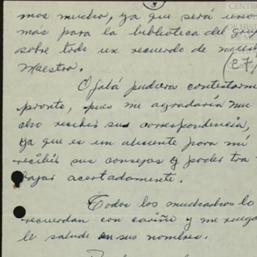 CENTRO
mos mucho, ya que será uno
mas para la biblioteca del gru
sobre todo un recuerdo de nuestro
Maestro.
(27)
Ojalá pudiera contestarme
pronto, pues me agradaría mu
cho recibir su correspondencia,
ya que es un aliciente para mí
recibir sus consejos y poder tra
bajar acertadamente.
Todos los muchachos lo
recuerdan con cariño y me ruegan
le salude en sus nombres.